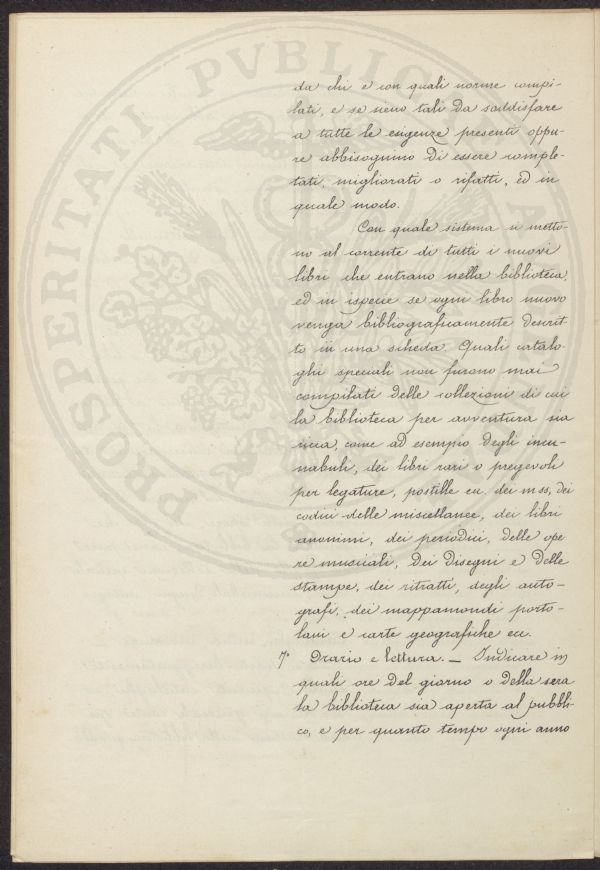 PROSPERITATI PVBLICAE
da chi e con quali norme compi-
lati, e se sieno tali da soddisfare
a tutte le esigenze presenti oppu-
re abbisognino di essere comple-
tati, migliorati o rifatti, ed in
quale modo.
Con quale sistema si metto-
no al corrente di tutti i nuovi
libri che entrano nella biblioteca
ed in ispecie se ogni libro nuovo
venga bibliograficamente descrit
to in una scheda. Quali catalo-
ghi speciali non furono mai
compilati delle collezioni di cui
la biblioteca per avventura sia
ricca, come ad esempio degli incu-
nabuli, dei libri rari o pregevoli
per legature, postille ecc. dei mss, dei
codici delle miscellanee, dei libri
anonimi, dei periodici, delle ope
re musicali, dei disegni e delle
stampe, dei ritratti, degli auto-
grafi, dei mappamondi porto-
lani e carte geografiche ecc.
7° Orario e lettura. — Indicare in
quali ore del giorno o della sera
la biblioteca sia aperta al pubbli-
co, e per quanto tempo ogni anno